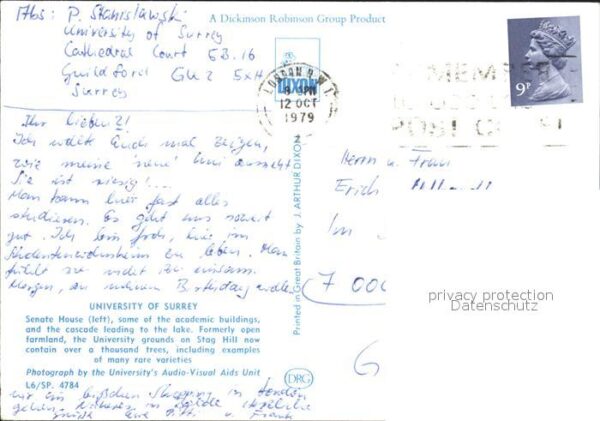 Abs: P. Stanislawski
University of Surrey
Cathedral Court 53.16
Guildford GU2 5XH
Surrey
A Dickinson Robinson Group Product
DIXON
LONDON N.W.1
8 PM
12 OCT
1979
REMEMBER
POST
9P
Ihr lieben 2!
Ich wollte Euch mal zeigen,
wie meine 'neue' Uni aussieht
Sie ist riesig!....
Man kann hier fast alles
studieren. Es geht uns soweit
gut. Ich bin froh, hier im
Studentenwohnheim zu leben. Man
fühlt sich nicht so einsam.
Morgen, an meinem Birthday wollen
wir ein bißchen Shopping in London
gehen.
u. Frank
Herrn u. Frau
Erich
Im
7 000
G
Printed in Great Britain by J. ARTHUR DIXON
UNIVERSITY OF SURREY
Senate House (left), some of the academic buildings,
and the cascade leading to the lake. Formerly open
farmland, the University grounds on Stag Hill now
contain over a thousand trees, including examples
of many rare varieties
Photograph by the University's Audio-Visual Aids Unit
L6/SP. 4784
DRG
privacy protection
Datenschutz